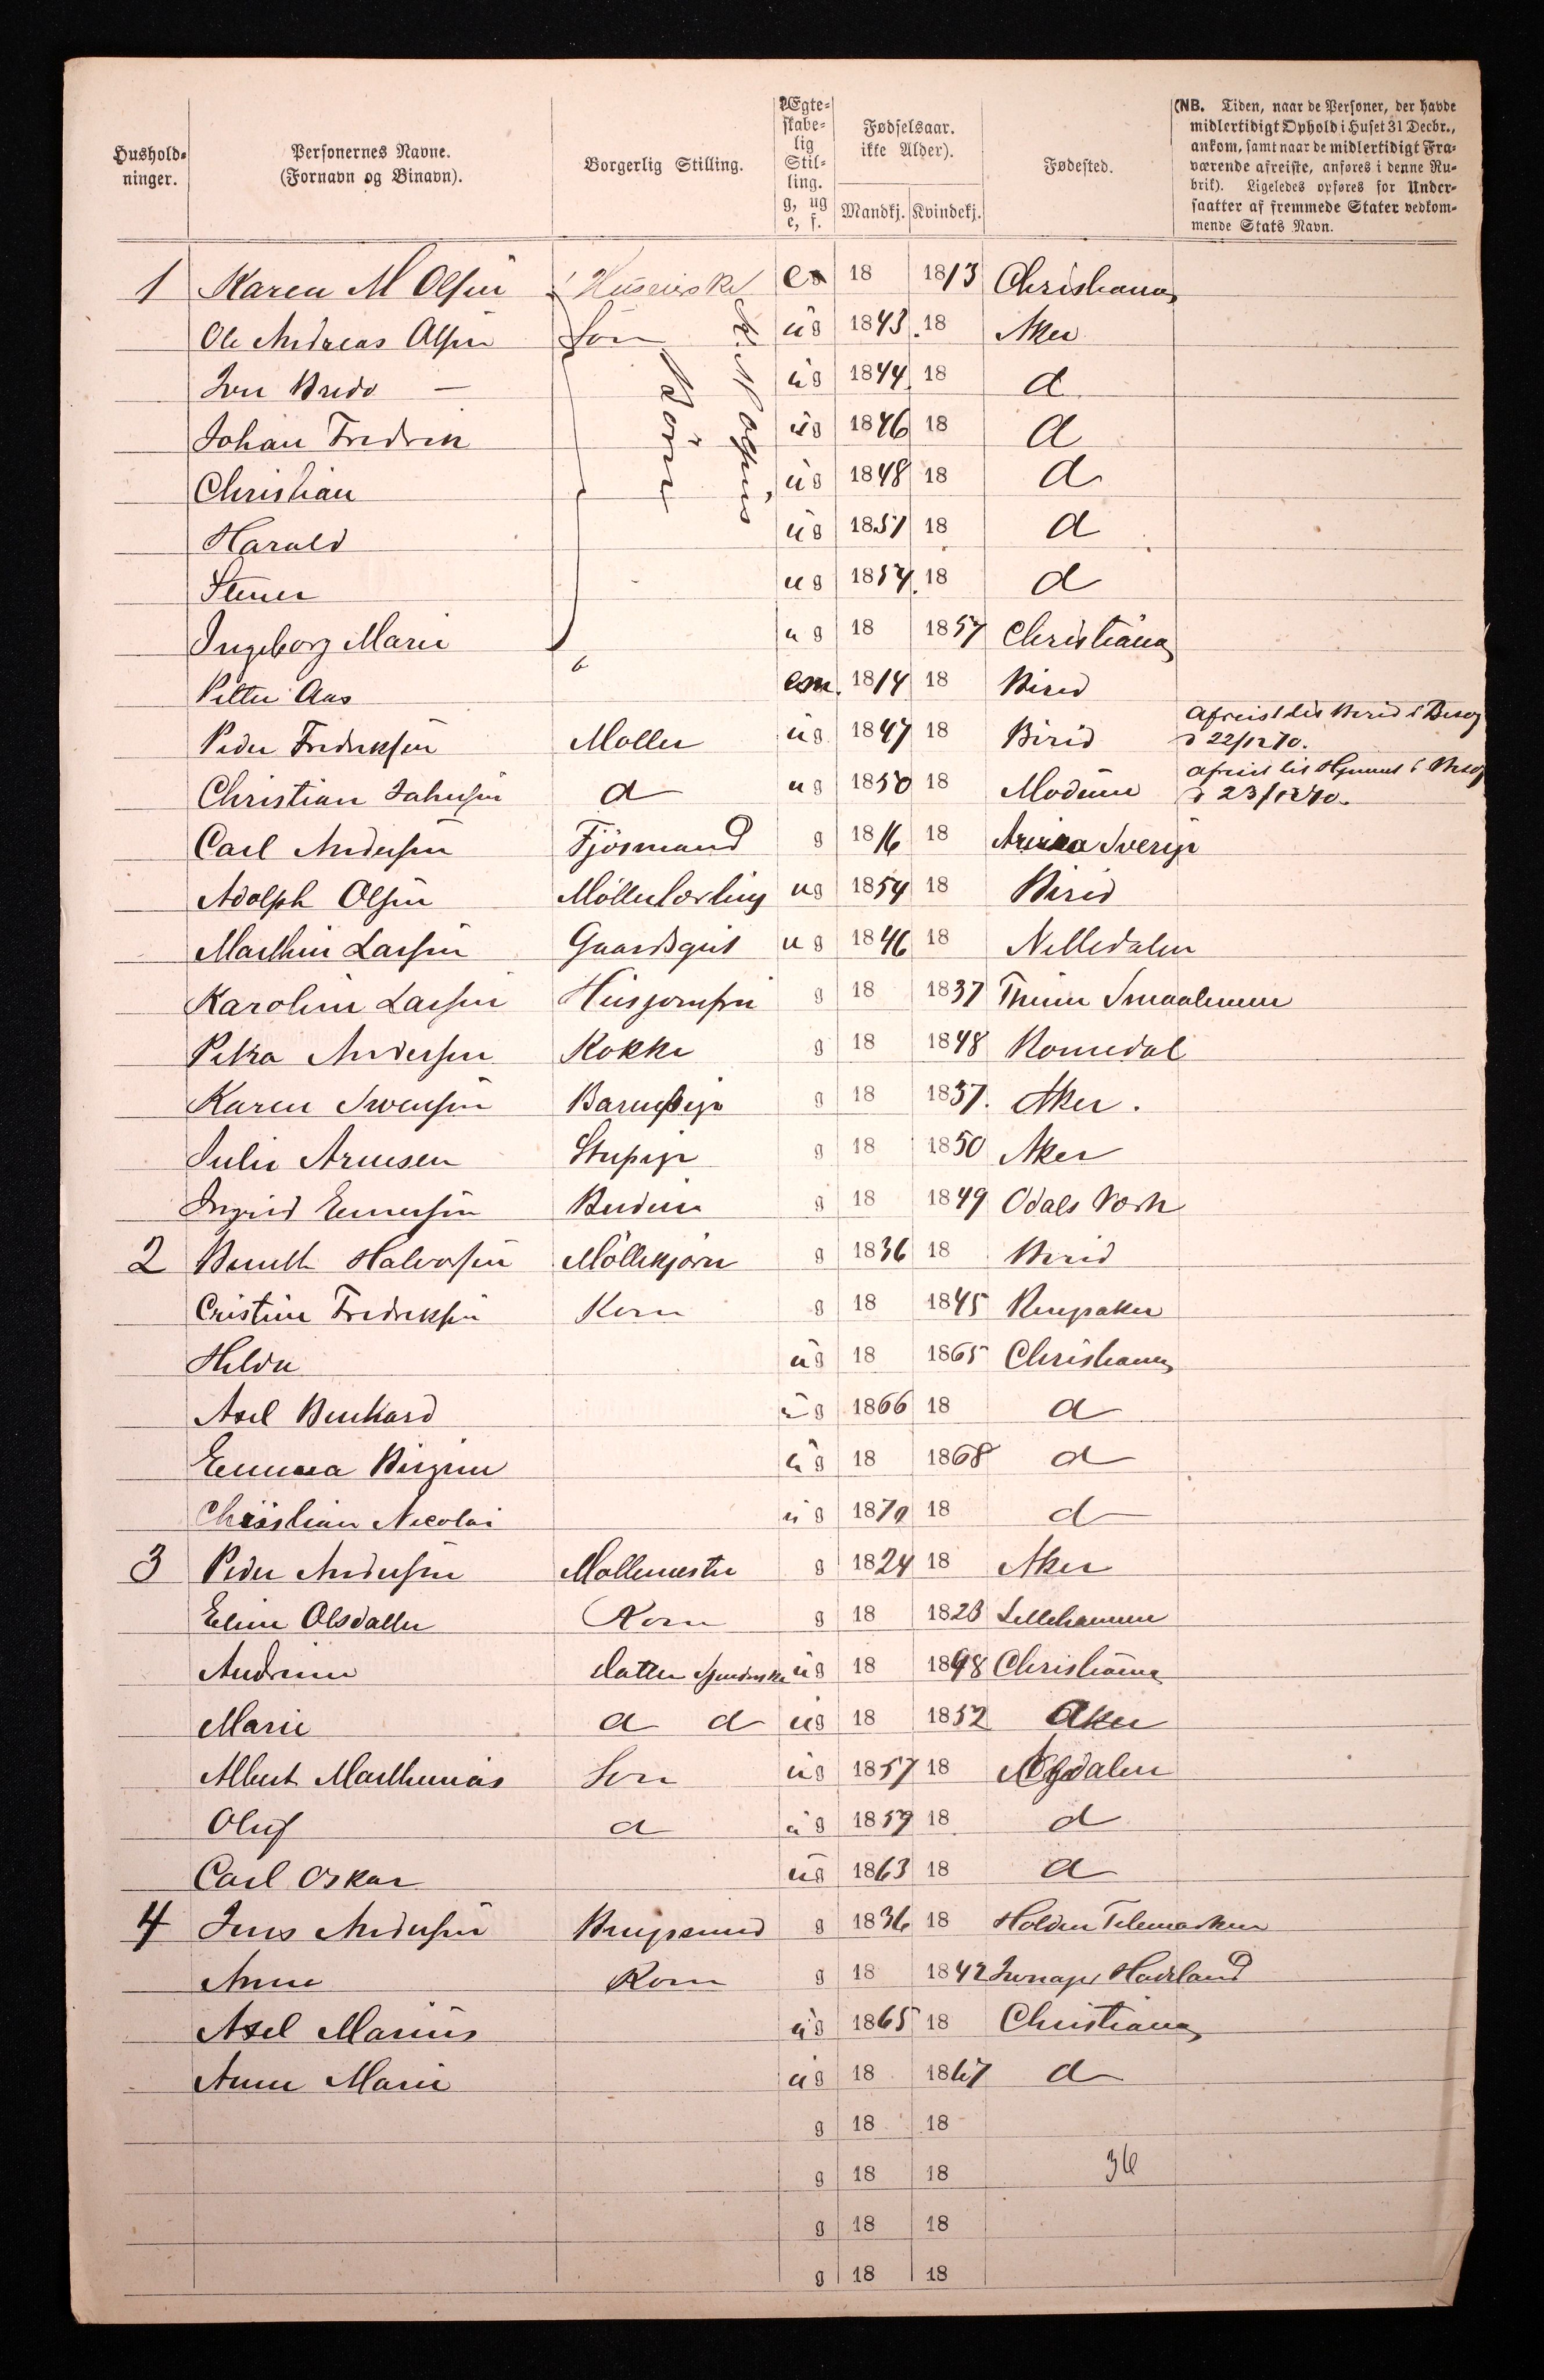 Hushold-
ninger.
Personernes Navne.
(Fornavn og Binavn).
Borgerlig Stilling.
Ægte-
skabe-
lig
Stil-
ling.
g, ug
e, f.
Fødselsaar.
ikke Alder).
Mandkj. Kvindekj.
Fødested.
(NB. Tiden, naar de Personer, der havde
midlertidigt Ophold i Huset 31 Decbr.,
ankom, samt naar de midlertidigt Fra-
værende afreiste, anføres i denne Ru-
brik). Ligeledes opføres for Under-
saatter af fremmede Stater vedkom-
mende Stats Navn.
1 Karen M Olsen e 18 1813 Christiania
Ole Andreas Olsen Søn ug 1843 18 Aker
Bredo — ug 1844 18 d
Johan Fredrik ug 1846 18 d
Christian ug 1848 18 d
Harald ug 1851 18 d
ug 1854 18 d
Ingeborg Marie ug 18 1857 Christiania
Petter Aas em. 1814 18 Birid
Peder Fredriksen Møller ug 1847 18 Birid d 22/12 70.
Christian Johnsen d ug 1850 18 Modum d 23/12 70.
Carl Andersen Fjösmand g 1816 18 Sverige
Adolph Olsen Möllerlærling ug 1854 18 Birid
Marthin Larsen Gaardsgut ug 1846 18 Nittedalen
Karoline Larsen Husjomfru g 18 1837 Smaalenene
Petra Andersen Kokke g 18 1848 Romedal
Karen Swensen Barnepige g 18 1837. Aker.
Julie Arnesen Stupige g 18 1850 Aker
Ingrid Budeie g 18 1849 Odals Værk
2 Halvorsen Möllekjører g 1836 18 Birid
Cristine Fredriksen Kone g 18 1845 Ringsaker
Hilda ug 18 1865 Christiania
Axel Bernhard ug 1866 18 d
Emma Birgine ug 18 1868 d
Christian Nicolai ug 1870 18 d
3 Peder Andersen Møllemester g 1824 18 Aker
Eline Olsdatter Kone g 18 1823 Lillehammer
Andrine datter ug 18 1848 Christiania
Marie d d ug 18 1852 Aker
Albert Marthinius Søn ug 1857 18
Oluf d ug 1859 18 d
Carl Oskar ug 1863 18 d
4 Jens Andersen g 1836 18 Holden Telemarken
Anne Kone g 18 1842 Jevnager Hadeland
Axel Marius ug 1865 18 Christiania
Anne Marie ug 18 1867 d
g 18 18
g 18 18 36
g 18 18
g 18 18